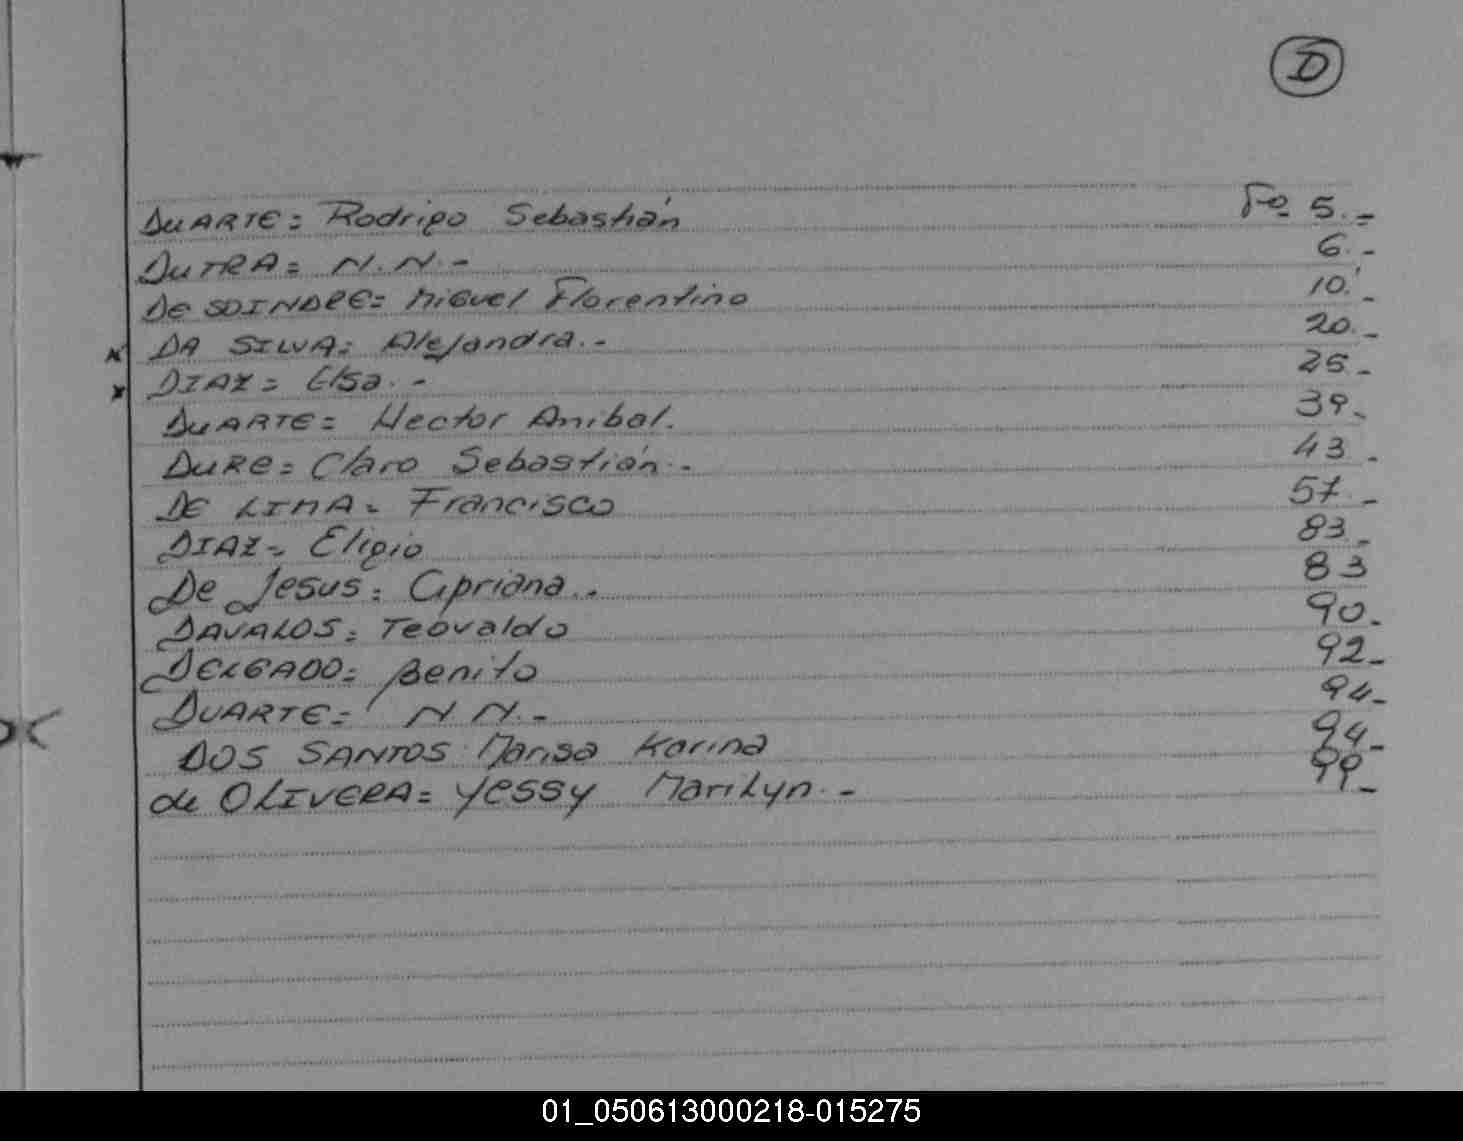 D
DUARTE= Rodrigo Sebastián Fo. 5.-
DUTRA= N.N.- 6.-
De SOINDRE= Miguel Florentino 10.-
x DA SILVA= Alejandra.- 20.-
x DIAZ= Elsa.- 25.-
DUARTE= Hector Anibal. 39-
DURE= Claro Sebastián.- 43.-
DE LIMA= Francisco 57.-
DIAZ= Eligio 83.-
De Jesus= Cipriana.- 83
DAVALOS= Teovaldo 90.
DELGADO= Benito 92-
DUARTE= N.N.- 94-
DOS SANTOS Marisa Karina 94-
de OLIVERA= Yessy Marilyn.- 99-
01_050613000218-015275